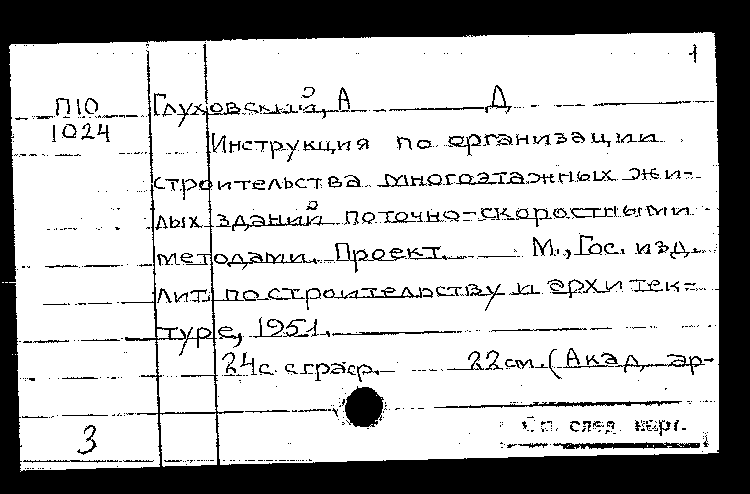 1
П10
1024
Глуховский, А Д
Инструкция по организации
строительства многоэтажных жи-
лых зданий поточно-скоростными
методами. Проект. М., Гос. изд.
лит. по строительству и архитек-
туре, 1951.
24с с граф. 22см. (Акад. ар-
См. след. карт.
3